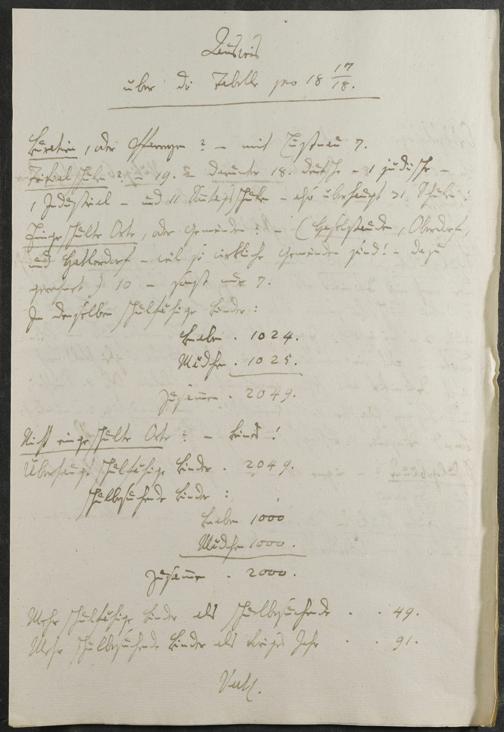 Ausweis
über die Tabelle pro 18 17/18.
Curatien, oder Pfarreyen? – mit Hustnau 7.
Trivialschulen? 19. – darunter 18. deutsche – 1 jüdische –
1 Industrial – und 11 Sonntagsschulen – also überhaupt 31 Schulen:
Eingeschulte Orte, oder Gemeinden: – (Haselstauden, Oberdorf
und Hatlerdorf – weil sie wirkliche Gemeinden sind! – dazu
gerechnet) 10 – sonst nur 7.
In denselben schulfähige Kinder:
Knaben . 1024.
Mädchen . 1025.
Zusammen . 2049.
Nicht eingeschulte Orte? – Keines!
Überhaupt schulfähige Kinder . 2049.
Schulbesuchende Kinder:
Knaben 1000
Mädchen 1000.
Zusammen . 2000.
Mehr schulfähige Kinder als schulbesuchende . . 49.
Mehr schulbesuchende Kinder als voriges Jahr . . 91.